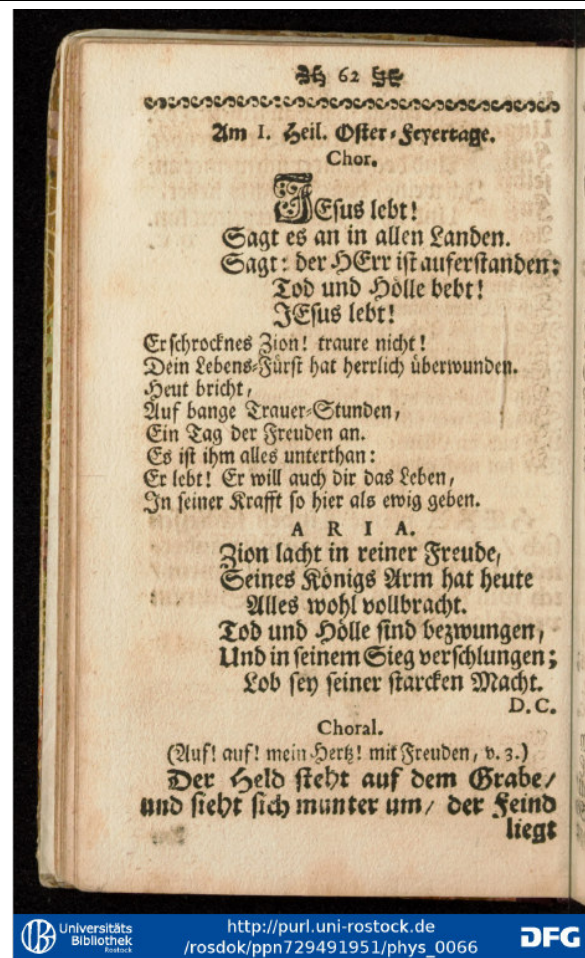 62
Am I. Heil. Oster-Feyertage.
Chor.
JEsus lebt!
Sagt es an in allen Landen.
Sagt: der HErr ist auferstanden;
Tod und Hölle bebt!
JEsus lebt!
Erschrocknes Zion! traure nicht!
Dein Lebens-Fürst hat herrlich überwunden.
Heut bricht,
Auf bange Trauer-Stunden,
Ein Tag der Freuden an.
Es ist ihm alles unterthan:
Er lebt! Er will auch dir das Leben,
In seiner Krafft so hier als ewig geben.
A R I A.
Zion lacht in reiner Freude,
Seines Königs Arm hat heute
Alles wohl vollbracht.
Tod und Hölle sind bezwungen,
Und in seinem Sieg verschlungen;
Lob sey seiner starcken Macht.
D. C.
Choral.
(Auf! auf! mein Hertz! mit Freuden, v. 3.)
Der Held steht auf dem Grabe/
und sieht sich munter um/ der Feind
liegt
Universitäts
Bibliothek
Rostock
http://purl.uni-rostock.de
/rosdok/ppn729491951/phys_0066
DFG